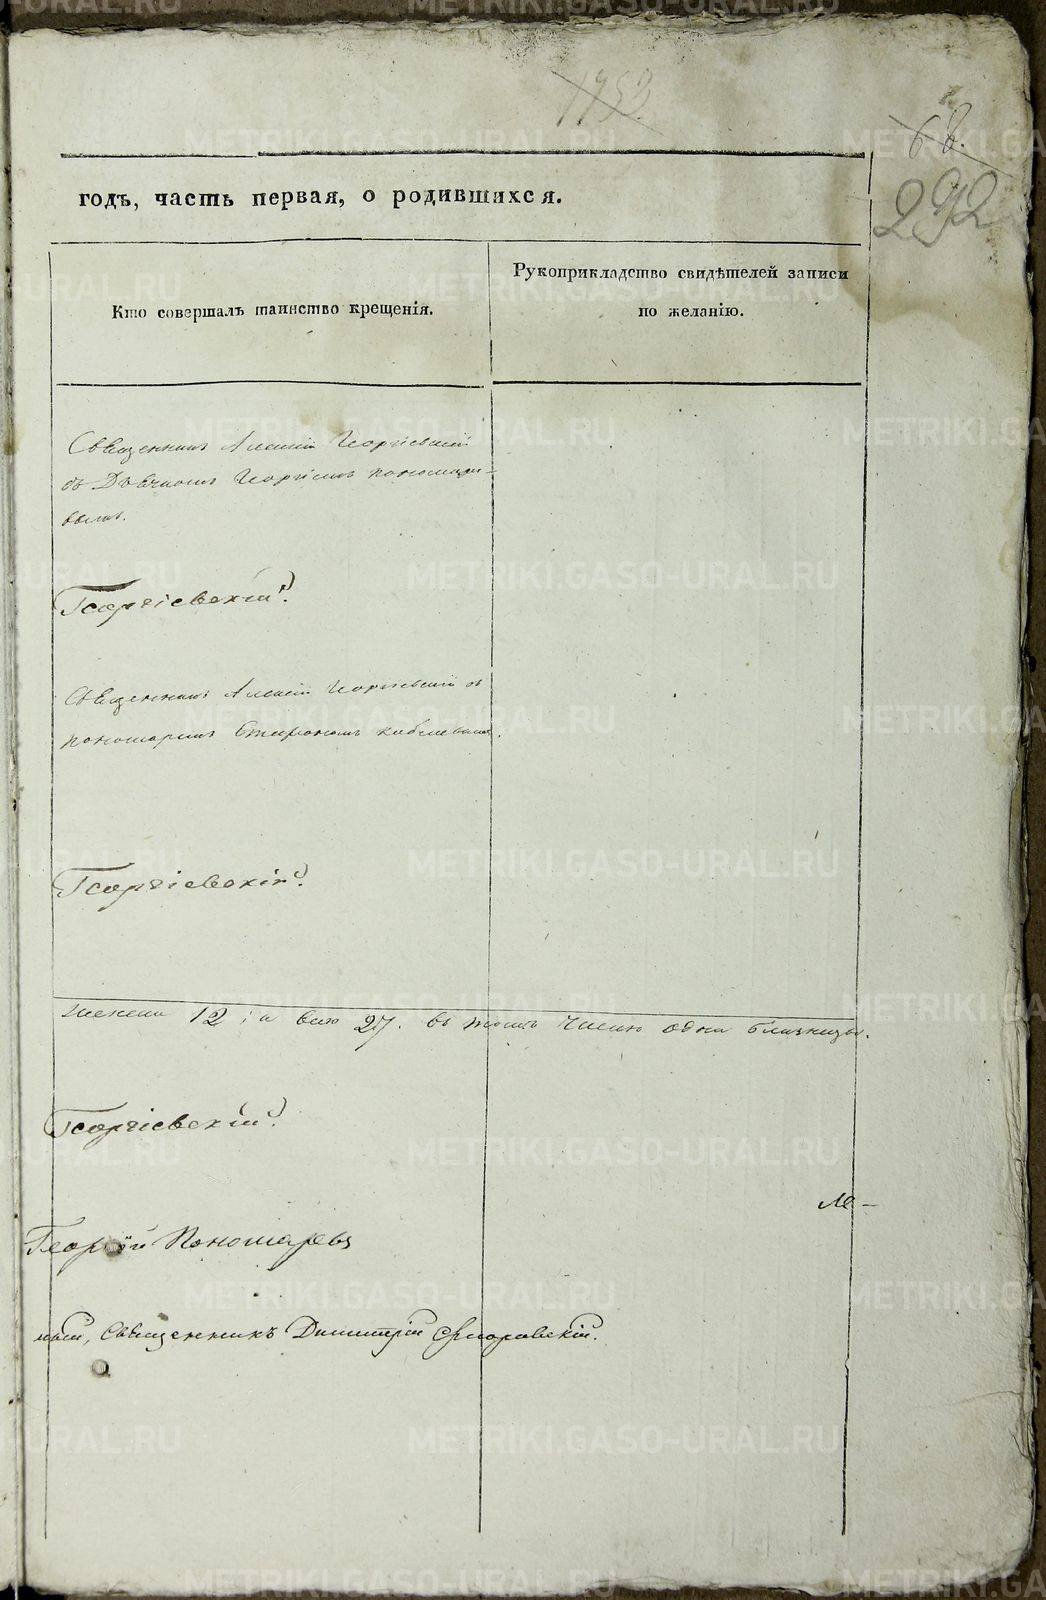 1953
68.
292
годъ, часть первая, о родившихся.
Кто совершалъ таинство крещенія.
Рукоприкладство свидѣтелей записи
по желанію.
Священникъ Алексій Георгіевскій
съ Дьячкомъ Георгіемъ Пономаре-
вымъ.
Георгіевскій.
Священникъ Алексій Георгіевскій съ
пономаремъ
Георгіевскій.
женска 12; а всѣхъ 27. въ томъ числѣ одни близнецы.
Георгіевскій.
Ме-
Георгій Пономаревъ
ный, Священникъ Димитрій Флоровскій.
METRIKI.GASO-URAL.RU